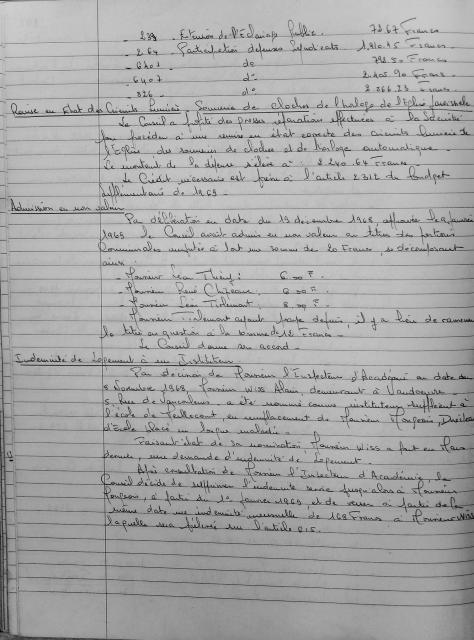 - 239 - Extension de l'Eclairage Public. 7267 Francs
- 264 - Participation dépenses Syndicats 1.910.45 Francs
- 6401 - do 792.50 Francs
- 6407 - do 2.405.90 Francs
- 826 - do 2.866.23 Francs
Remise en Etat des Circuits Lumière, Sonnerie de cloches de l'horloge de l'Eglise paroissiale
Le Conseil a profité des presses réparations effectuées à la Sécurité
pour procéder à une remise en état correcte des circuits lumière de
l'Eglise du sonnerie de cloches et de horloge automatique.
Le montant de la dépense s'élève à : 2 240.64 Francs
Le Crédit nécessaire est prévu à l'article 2312 du budget
supplémentaire de 1969 -
Admission en non valeur
Par délibération en date du 19 décembre 1968, approuvée le janvier
1969 le Conseil avait admis en non valeur un titre des
Communales amputée à tort une somme de 20 Francs, se décomposant
ainsi :
- Monsieur Léon Thiéry : 6.00 F.
- Monsieur René : 6.00 F.
- Monsieur Léon : 8.00 F.
Monsieur ayant payé depuis, il y a lieu de ramener
le titre en question à la somme de 12 Francs -
Le Conseil donne son accord.
Indemnité de Logement à un Instituteur
Par décision de Monsieur l'Inspecteur d'Académie en date du
Novembre 1968, Monsieur Wiss Alain, demeurant à Vandoeuvre
5, Rue de Vaucouleurs - a été nommé comme instituteur suppléant à
l'école de en remplacement de Monsieur Mougeois, Directeur
d'Ecole placé en longue maladie.
Faisant état de sa nomination, Monsieur Wiss a fait en Mars
dernier, une demande d'indemnité de Logement.
Après consultation de Monsieur l'Inspecteur d'Académie, le
Conseil décide de supprimer l'indemnité servie jusqu'alors à Monsieur
Mougeois, à partir du 1er février 1969, et de verser à partir de la
même date une indemnité mensuelle de 168 Francs à Monsieur Wiss
laquelle sera prélevée sur l'article 615.